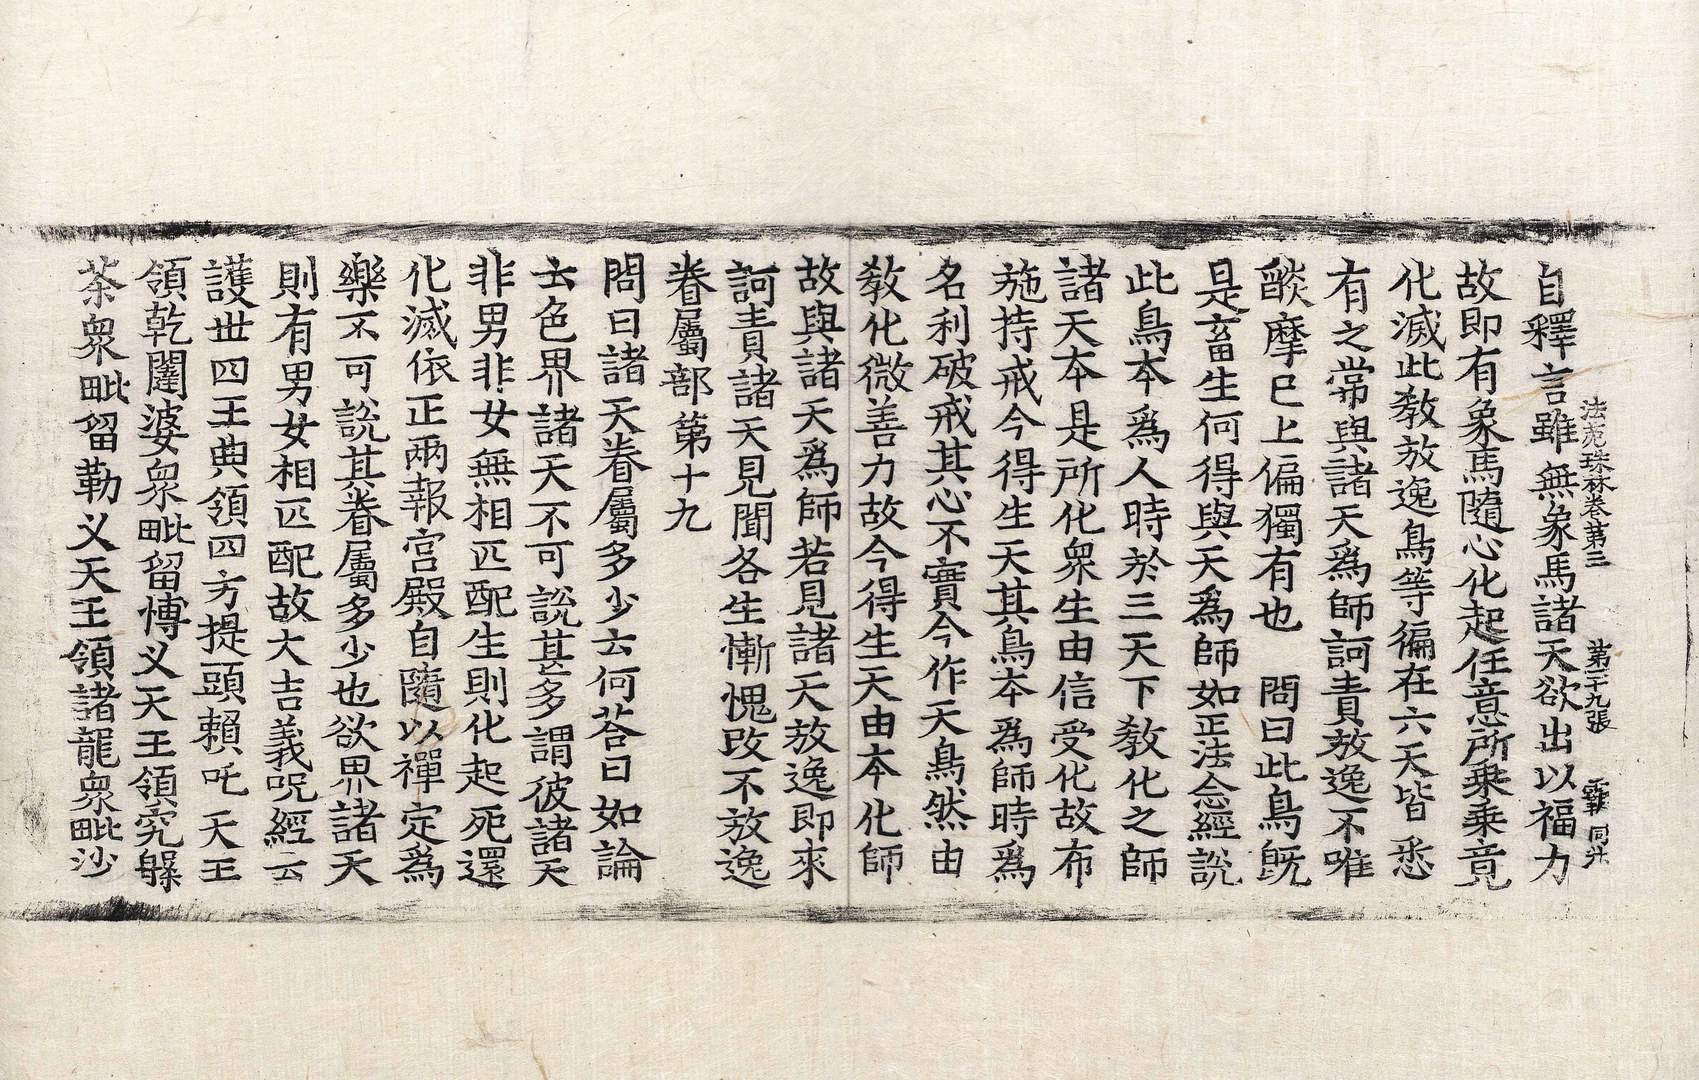 法苑珠林卷第三 第二十九張 覇 同井
自釋言雖無象馬諸天欲出以福力
故即有象馬隨心化起任意所乗乗竟
化滅此敎放逸鳥等徧在六天皆悉
有之常與諸天爲師訶責放逸不唯
𦦨摩巳上偏獨有也 問曰此鳥旣
是畜生何得與天爲師如正法念經說
此鳥本爲人時於三天下敎化之師
諸天本是所化衆生由信受化故布
施持戒今得生天其鳥本爲師時爲
名利破戒其心不實今作天鳥然由
敎化微善力故今得生天由本化師
故與諸天爲師若見諸天放逸即來
訶責諸天見聞各生慚愧改不放逸
眷屬部第十九
問曰諸天眷屬多少云何荅曰如論
云色界諸天不可說其多謂彼諸天
非男非女無相匹配生則化起死還
化滅依正兩報宫殿自隨以禪定爲
樂不可說其眷屬多少也欲界諸天
則有男女相匹配故大吉義呪經云
護世四王典領四方提頭賴吒天王
領乾闥婆衆毗留愽义天王領究槃
茶衆毗留勒义天王領諸龍衆毗沙